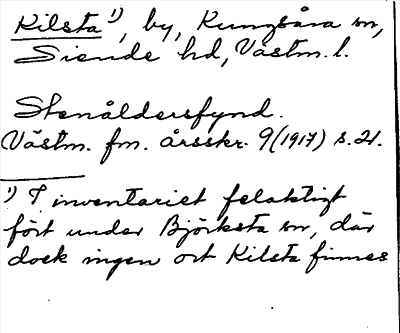 Kilsta ¹), by, Kungsåra sn,
Siende hd, Västm. l.
Stenåldersfynd.
Västm. fm. årsskr. 9 (1917) s. 21.
¹) I inventariet felaktigt
fört under Björksta sn, där
dock ingen ort Kilsta finnes